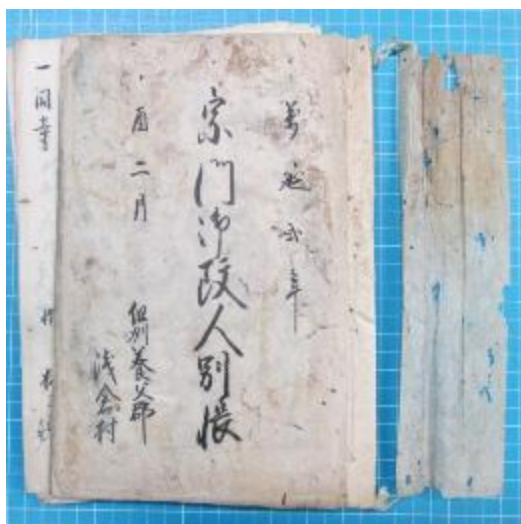 萬延弐年
宗門御改人別帳
酉二月
但州養父郡
浅倉村
一同書